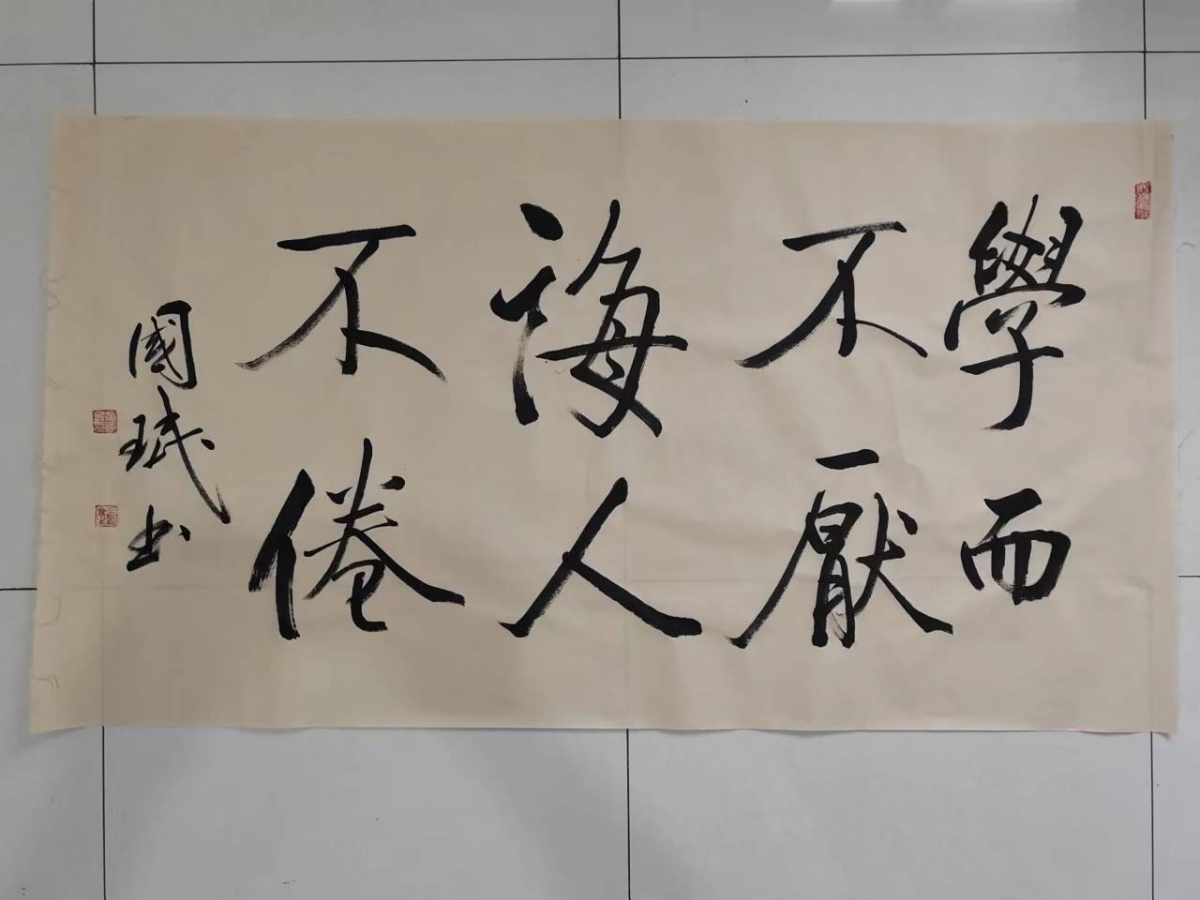 學而
不厭
誨人
不倦
國珉书